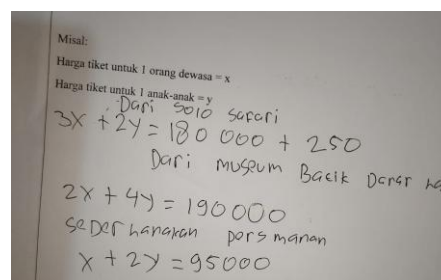 Misal:
Harga tiket untuk 1 orang dewasa = x
Harga tiket untuk 1 anak-anak = y
Dari solo safari
3x + 2y = 180 000 + 250
Dari museum Batik Danar
2x + 4y = 190000
sederhanakan persmanan
x + 2y = 95000